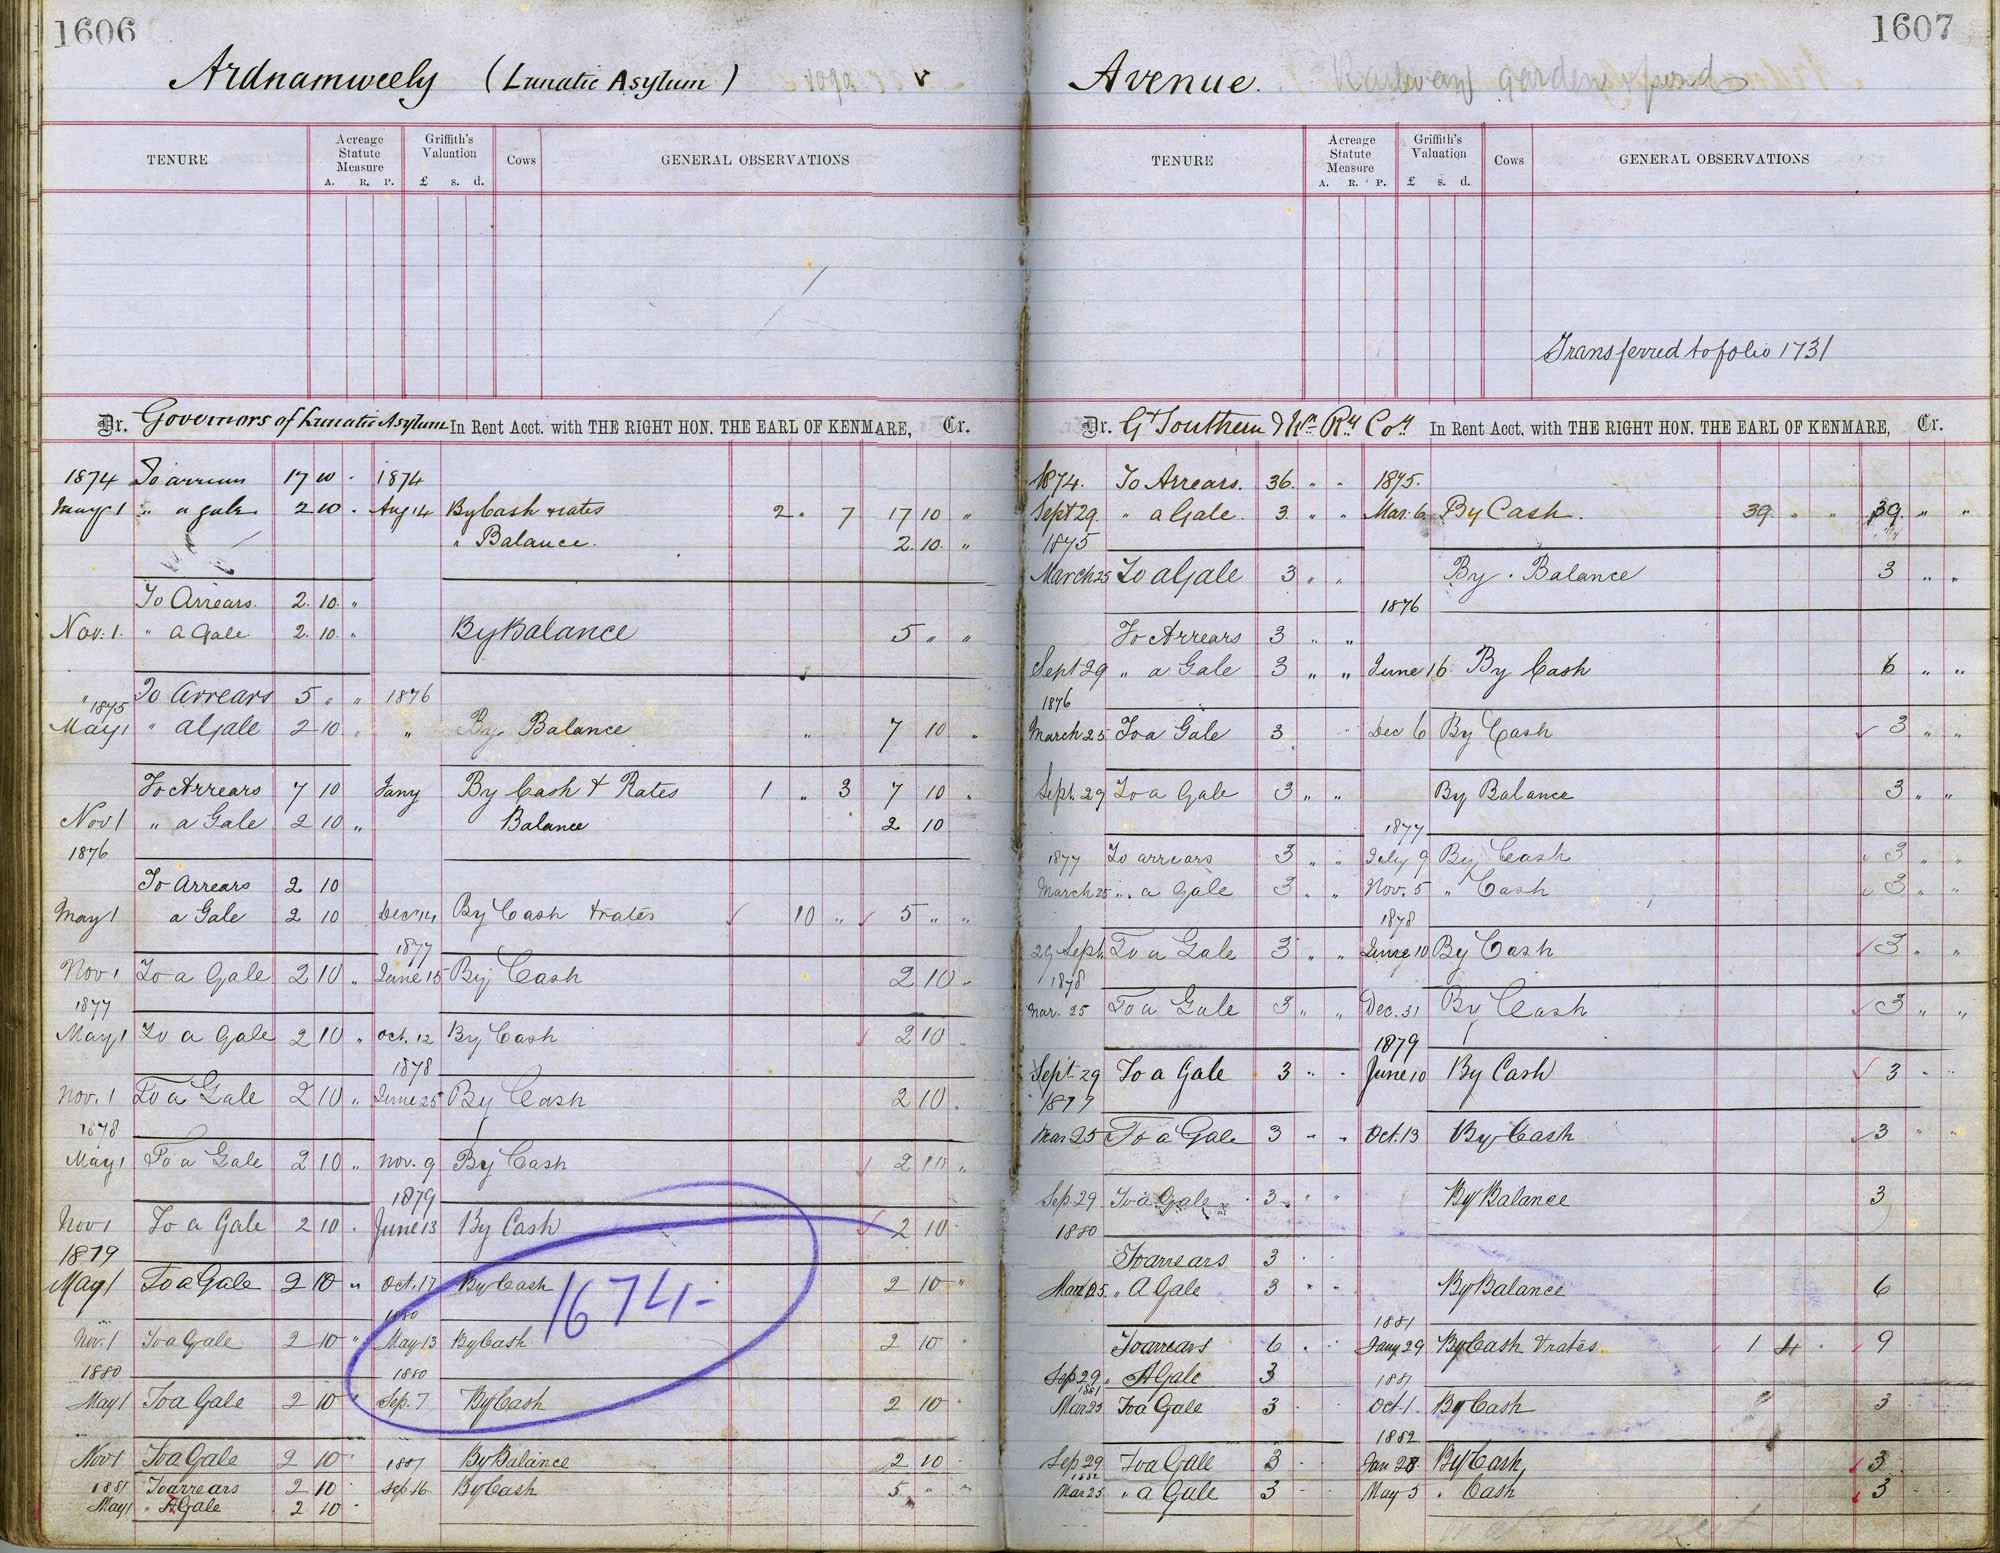 1606
Ardnamweely (Lunatic Asylum)
TENURE
Acreage Statute Measure
A. R. P.
Griffith's Valuation
£ s. d.
Cows
GENERAL OBSERVATIONS
Dr. Governors of Lunatic Asylum In Rent Acct. with THE RIGHT HON. THE EARL OF KENMARE, Cr.
1874 To arrears 17 10 1874
May 1 " a gale 2 10 Aug 14 By Cash & rates 2 " 7 17 10 "
" Balance. 2. 10. "
To Arrears. 2. 10. "
Nov. 1. " a Gale 2. 10. " By Balance 5 " "
" To Arrears 5 " " 1876
1875
May 1 " a Gale 2 10 " " By Balance 7 10 "
To Arrears 7 10 Jany By Cash & Rates 1 " 3 7 10 "
Nov 1 " a Gale 2 10 " Balance 2 10
1876
To Arrears 2 10
May 1 a Gale 2 10 Dec 14 By Cash & rates 10 " 5 " "
1877
Nov 1 To a Gale 2 10 " June 15 By Cash 2 10 "
1877
May 1 To a Gale 2 10 " Oct. 12 By Cash 2 10 "
1878
Nov. 1 To a Gale 2 10 " June 25 By Cash 2 10 "
1878
May 1 To a Gale 2 10 " Nov. 9 By Cash 2 10 "
1879
Nov 1 To a Gale 2 10 " June 13 By Cash 2 10
1879
May 1 To a Gale 2 10 " Oct. 17 By Cash 2 10 "
1674-
1880
Nov. 1 To a Gale 2 10 " May 13 By Cash 2 10 "
1880 1880
May 1 To a Gale 2 10 " Sep. 7 By Cash 2 10 "
Nov 1 To a Gale 2 10 " 1881 By Balance 2 10
1881 To arrears 2 10 Sep 16 By Cash 5 " "
May 1 " A Gale 2 10
1607
Avenue. Railway gardens & pond
TENURE
Acreage Statute Measure
A. R. P.
Griffith's Valuation
£ s. d.
Cows
GENERAL OBSERVATIONS
Transferred to folio 1731
Dr. Gt Southern & Wn Ry Coy In Rent Acct. with THE RIGHT HON. THE EARL OF KENMARE, Cr.
1874. To Arrears. 36. " " 1875.
Sept 29. " a Gale. 3. " " Mar. 6 By Cash. 39 " " 39. " "
1875
March 25 To a Gale 3 " " By Balance 3 " "
1876
To Arrears 3 " "
Sept 29 " a Gale 3 " " June 16 By Cash 6 " "
1876
March 25 To a Gale 3 Dec 6 By Cash 3 " "
Sept. 29 To a Gale 3 " " By Balance 3 " "
1877
1877 To arrears 3 " " July 9 By Cash 3 " "
March 25 " a Gale 3 " " Nov. 5 " Cash 3 " "
1878
29 Sept. To a Gale 3 " " June 10 By Cash 3 " "
1878
Mar. 25 To a Gale 3 " " Dec. 31 By Cash 3 " "
1879
Sept 29 To a Gale 3 " " June 10 By Cash 3 " "
1879
Mar 25 To a Gale 3 " " Oct. 13 By Cash 3 " "
Sep 29 To a Gale 3 " " By Balance 3
1880
To arrears 3
Mar 25 " A Gale 3 " " By Balance 6
1881
To arrears 6 Jany 29 By Cash & rates 1 4 9
Sep 29 " A Gale 3 1881
1881
Mar 25 To a Gale 3 Oct. 1. By Cash 3
1882
Sep 29 To a Gale 3 Jan 28 By Cash 3
1882
Mar 25 " a Gale 3 May 5 " Cash 3